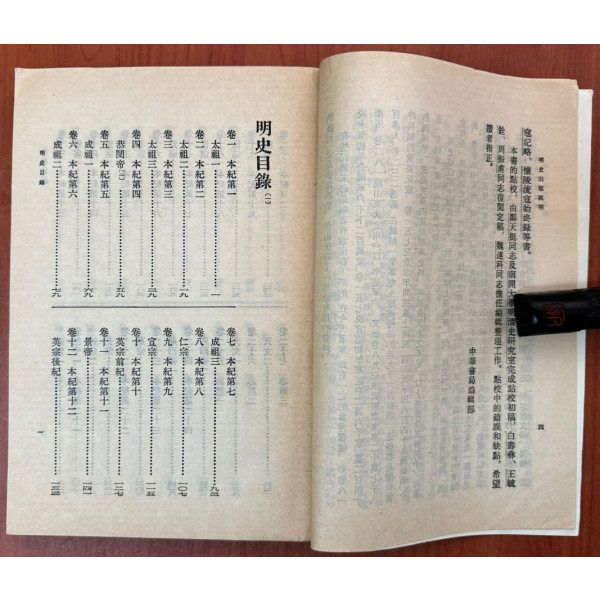 明史出版說明
四
寇記略、懷陵流寇始終錄等書。
本書的點校，由鄭天挺同志及南開大學明清史研究室完成點校初稿，白壽彝、王毓
銓、周振甫同志復閱定稿，魏連科同志擔任編輯整理工作。點校中的錯誤和缺點，希望
讀者指正。
中華書局編輯部
明史目錄(一)
卷一 本紀第一
太祖一……一
卷二 本紀第二
太祖二……一九
卷三 本紀第三
太祖三……三九
卷四 本紀第四
恭閔帝……五九
卷五 本紀第五
成祖一……六九
卷六 本紀第六
成祖二……七九
卷七 本紀第七
成祖三……九三
卷八 本紀第八
仁宗……一〇七
卷九 本紀第九
宣宗……一一五
卷十 本紀第十
英宗前紀……一二七
卷十一 本紀第十一
景帝……一四一
卷十二 本紀第十二
英宗後紀……一五三
明史目錄
一